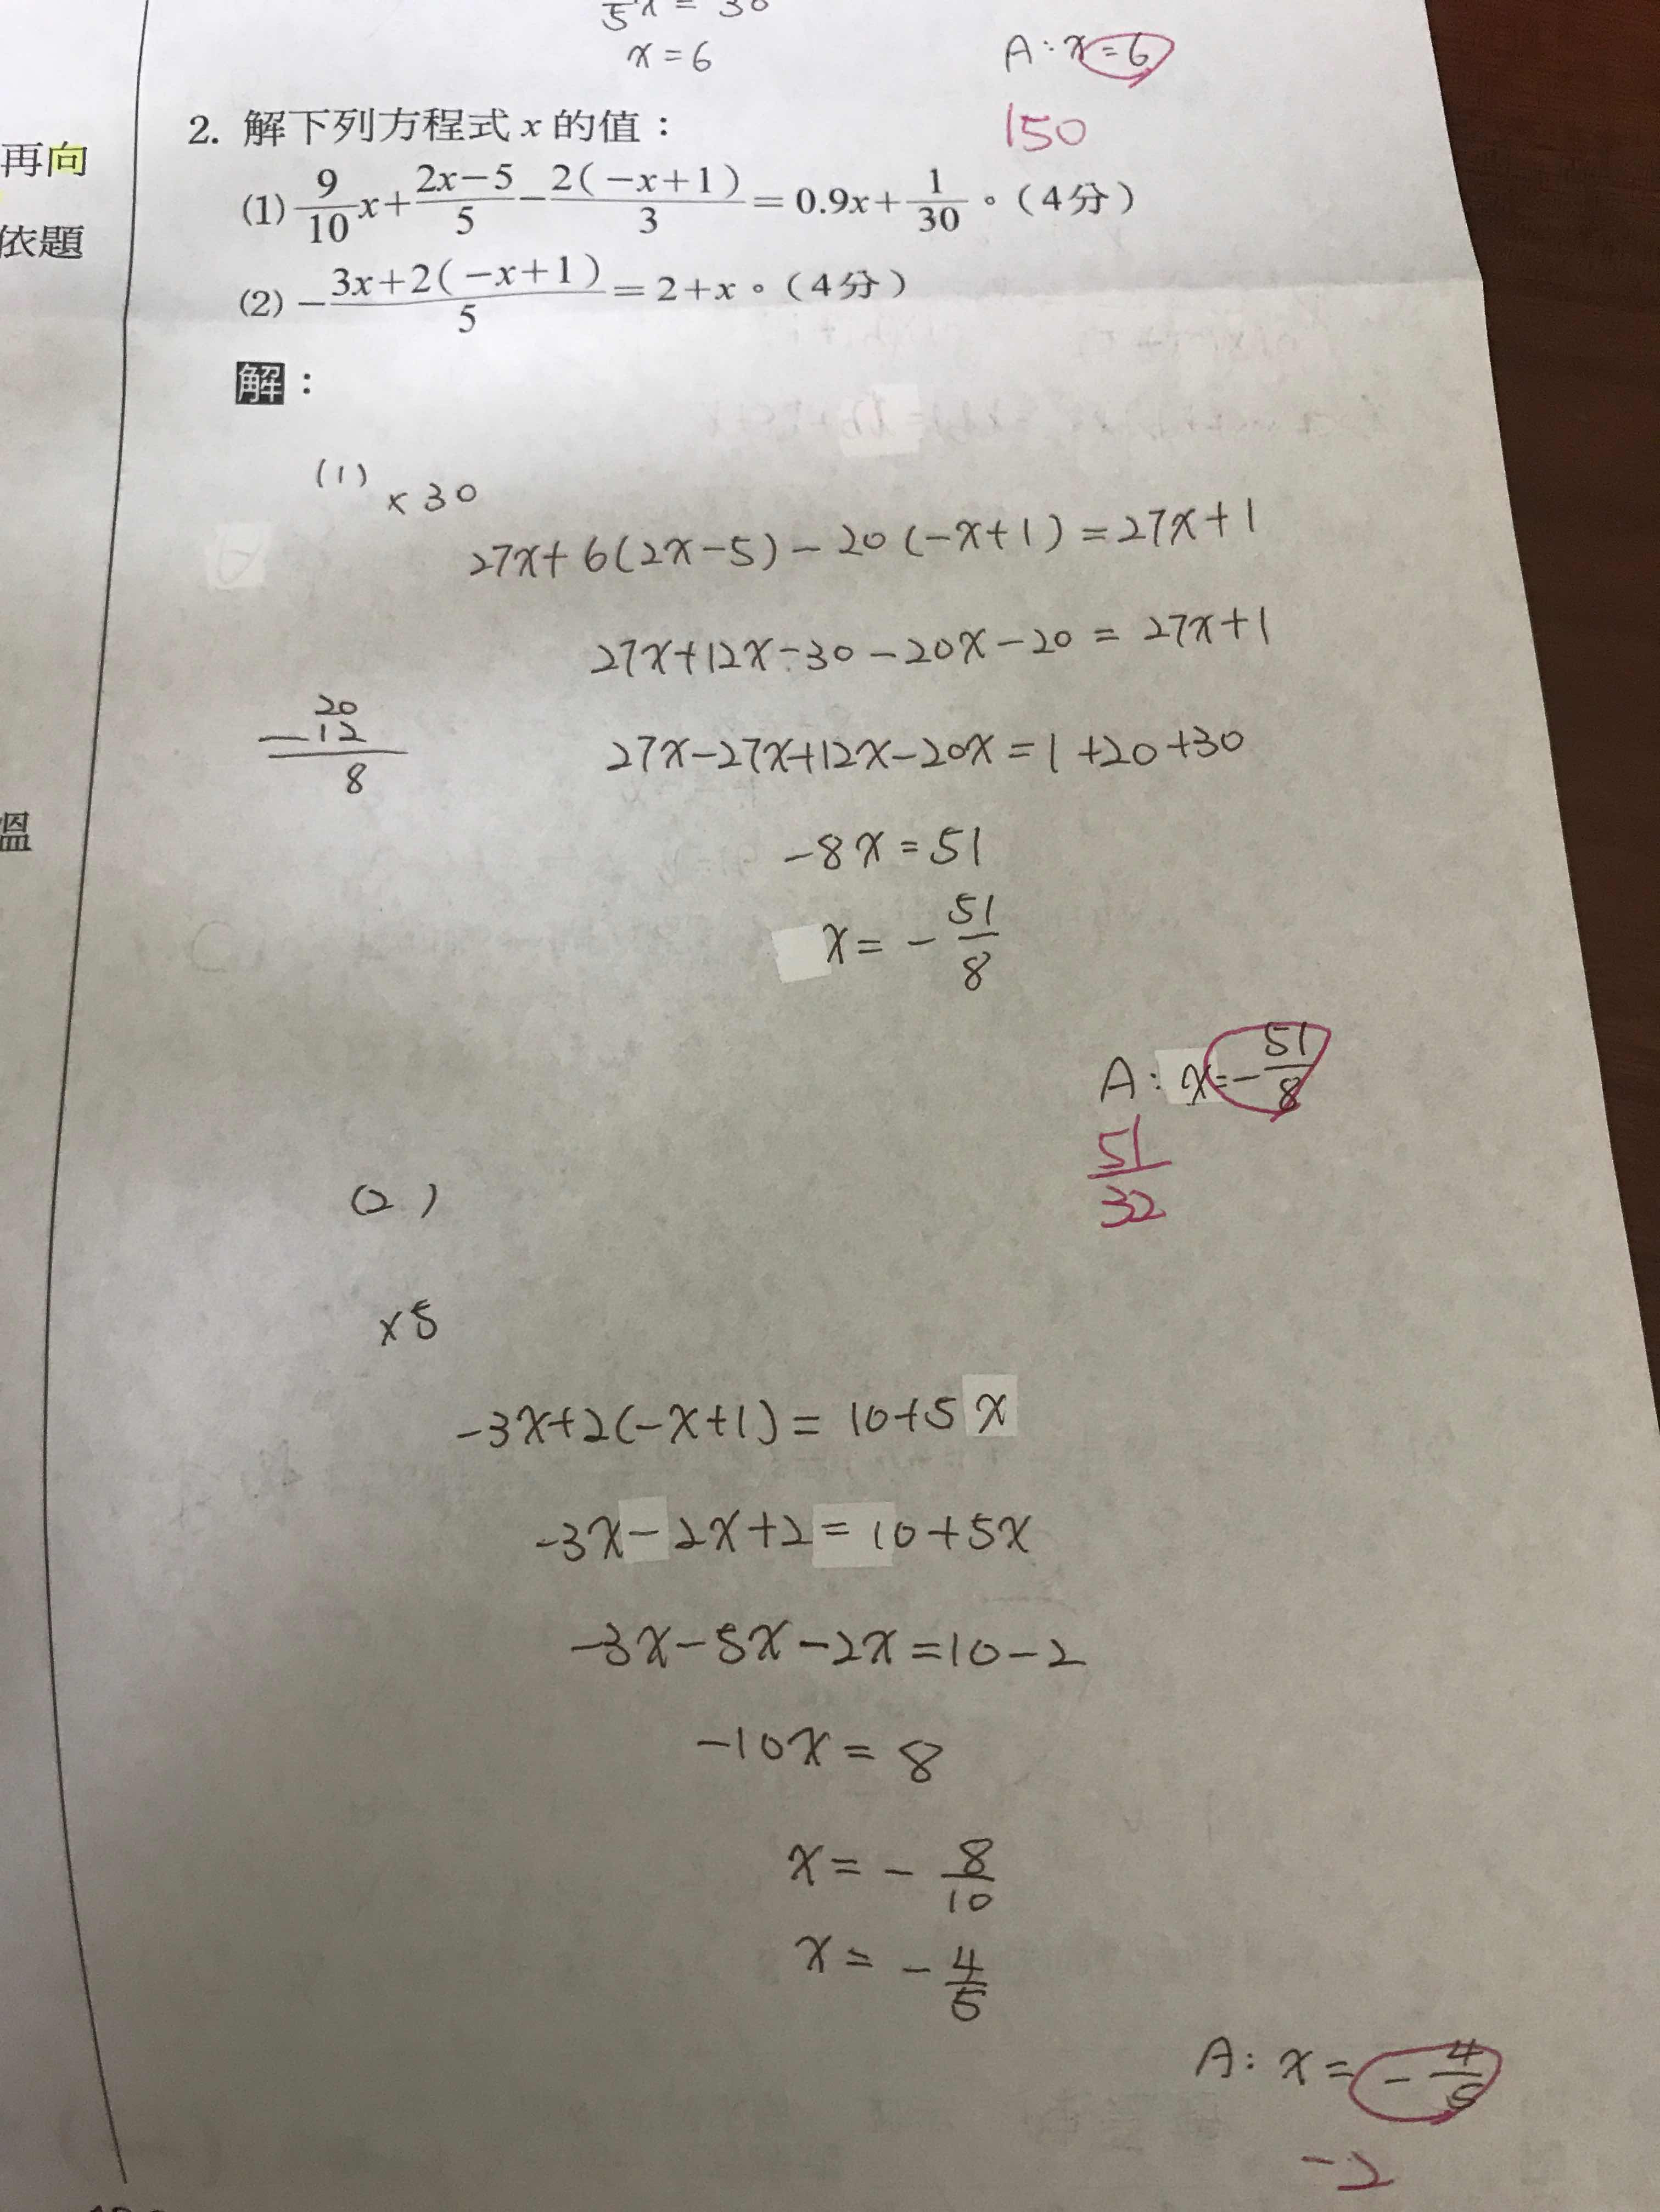 x = 6
A : x = 6
150
再向
依題
2. 解下列方程式 x 的值：
(1) 9/10 x + (2x-5)/5 - 2(-x+1)/3 = 0.9x + 1/30 。（4分）
(2) - (3x+2(-x+1))/5 = 2 + x 。（4分）
解：
(1) ×30
27x + 6(2x-5) - 20(-x+1) = 27x+1
27x+12x-30-20x-20 = 27x+1
20
-12
8
27x-27x+12x-20x = 1+20+30
-8x = 51
x = - 51/8
A : x = - 51/8
51/32
(2)
×5
-3x+2(-x+1) = 10+5x
-3x-2x+2 = 10+5x
-3x-5x-2x = 10-2
-10x = 8
x = - 8/10
x = - 4/5
A : x = - 4/5
-2